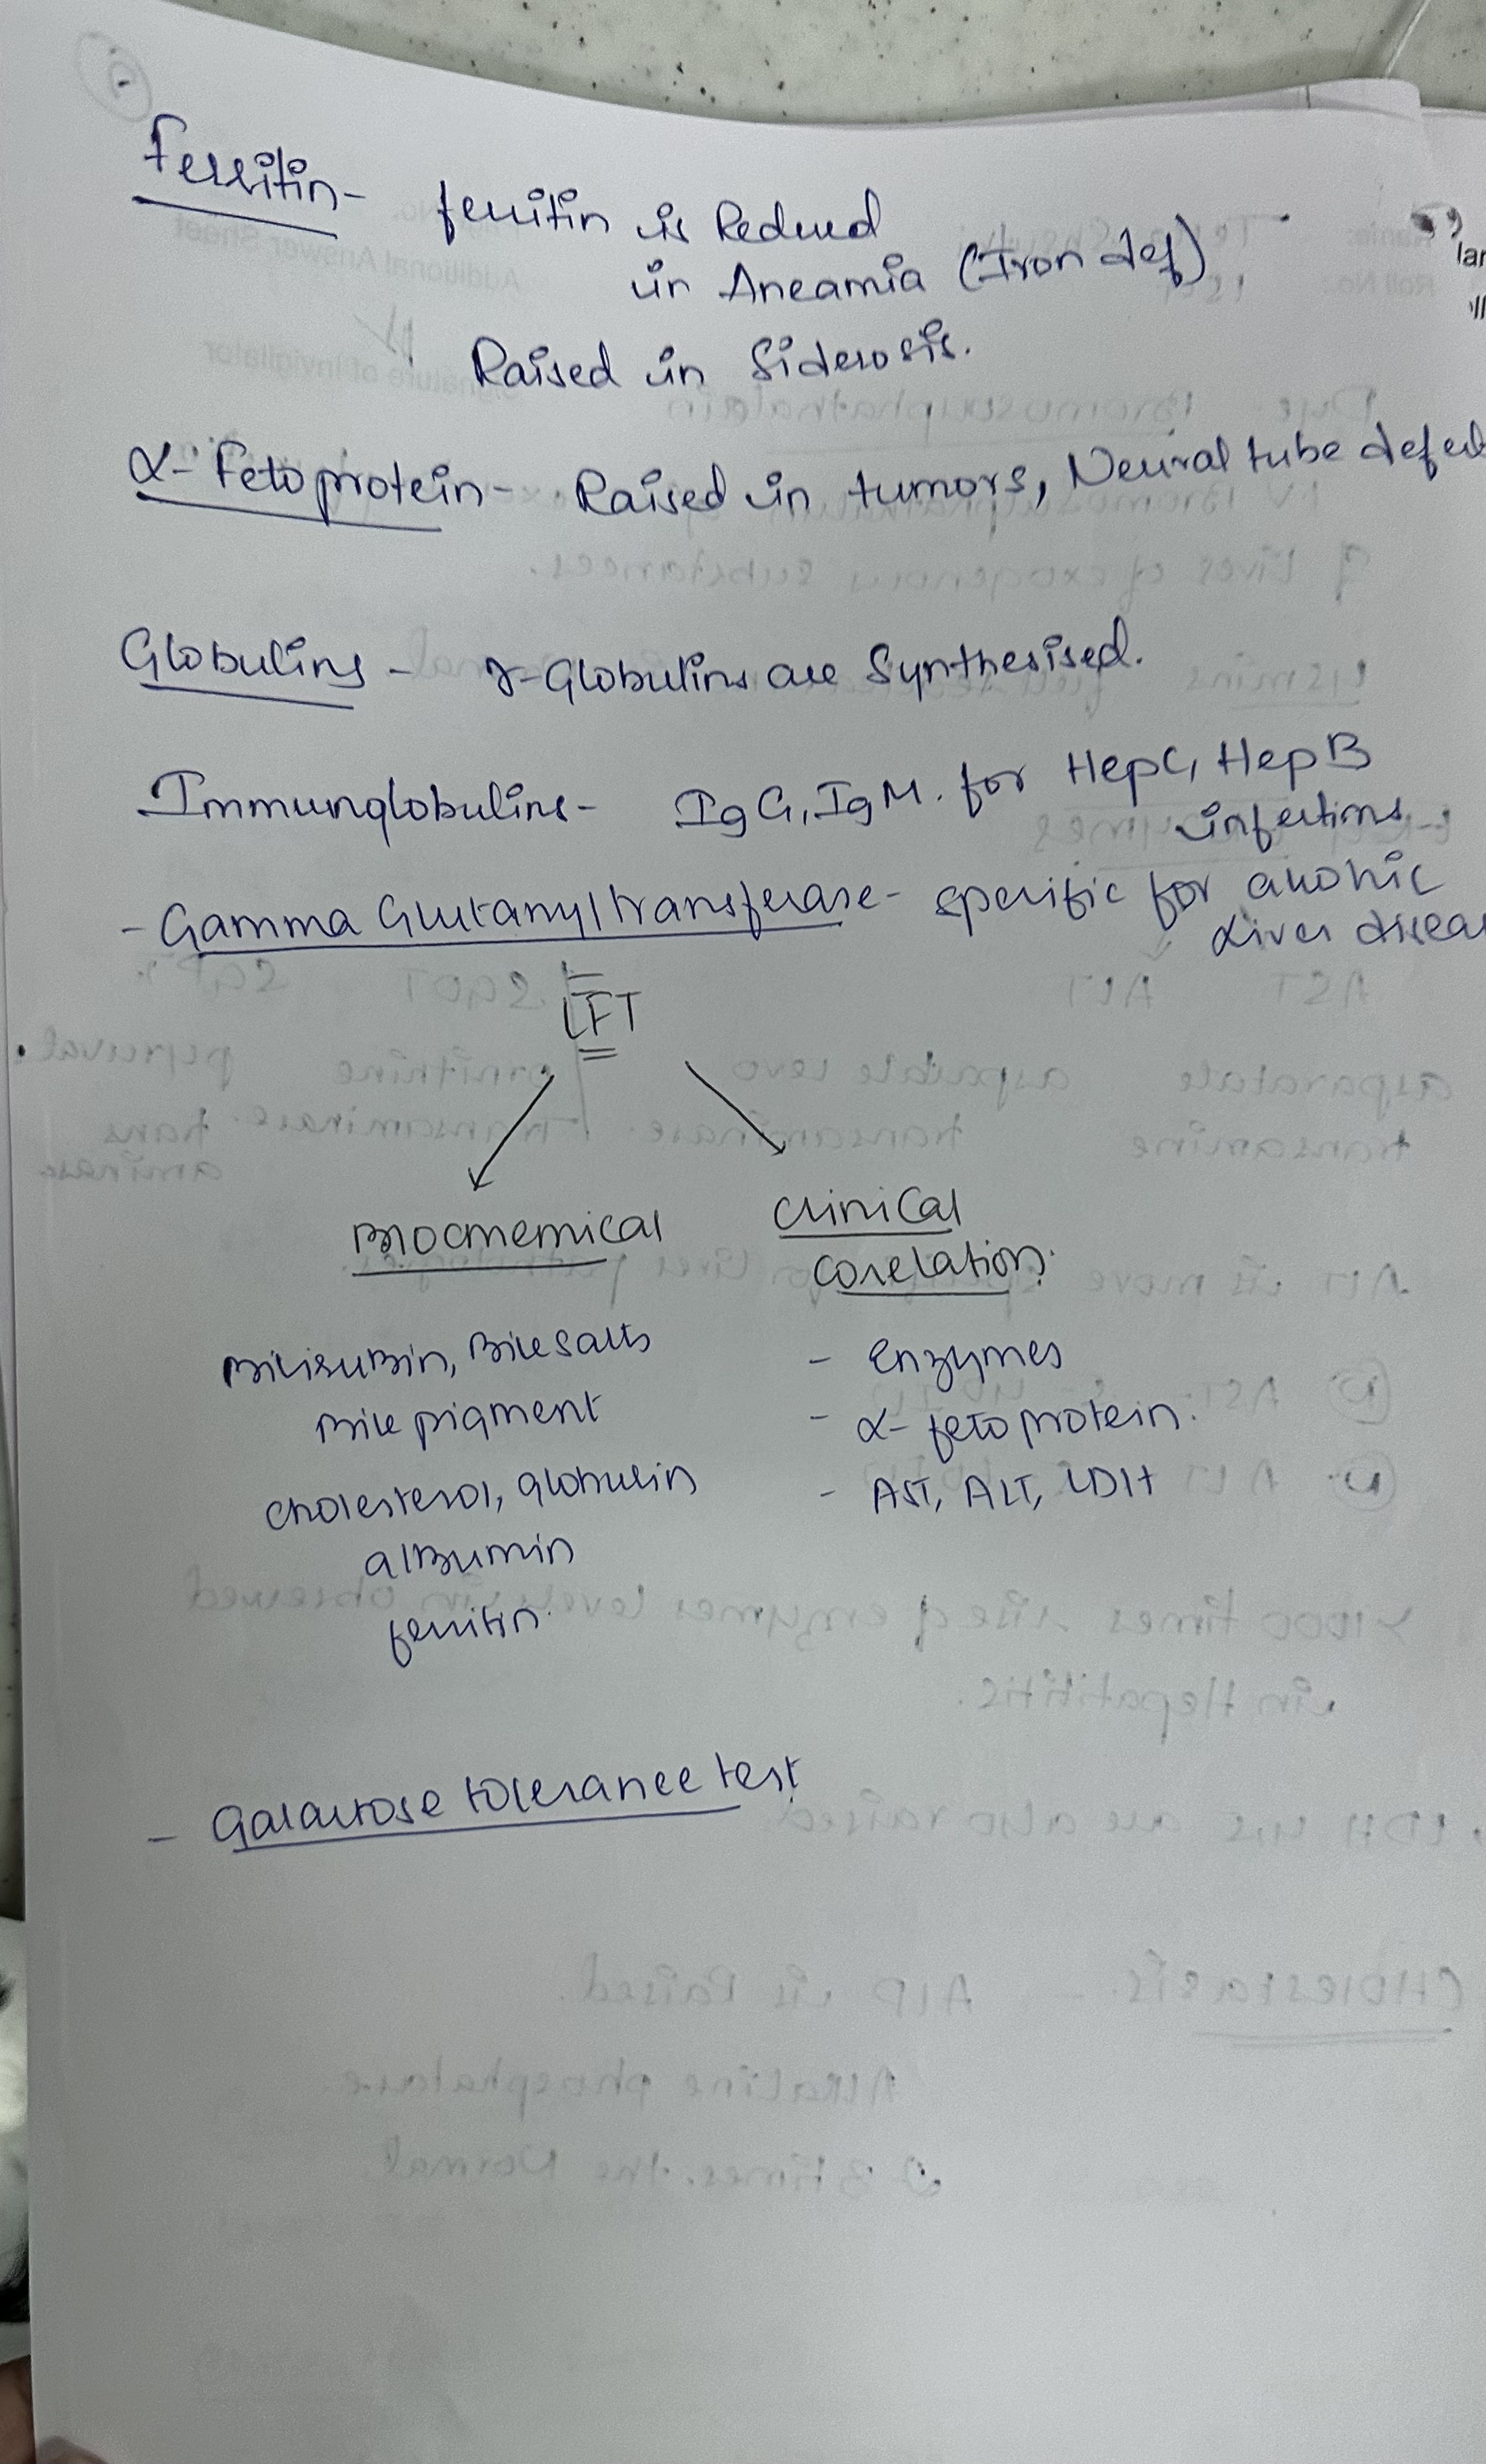 Ferritin- ferritin is Reduced
in Aneamia (Iron def)
Raised in Siderosis.
α- Fetoprotein- Raised in tumors, Neural tube defect
Globulins - γ-Globulins are Synthesised.
Immunglobulins- IgG, IgM. for HepC, HepB
infections.
- Gamma Glutamyl transferase- specific for
Liver diseas
LFT
Biochemical
Clinical
Corelation.
Bilirubin, Bile salts
Bile pigment
cholesterol, globulin
albumin
ferritin.
- Enzymes
- α- feto protein.
- AST, ALT, LDH
- Galactose tolerance test